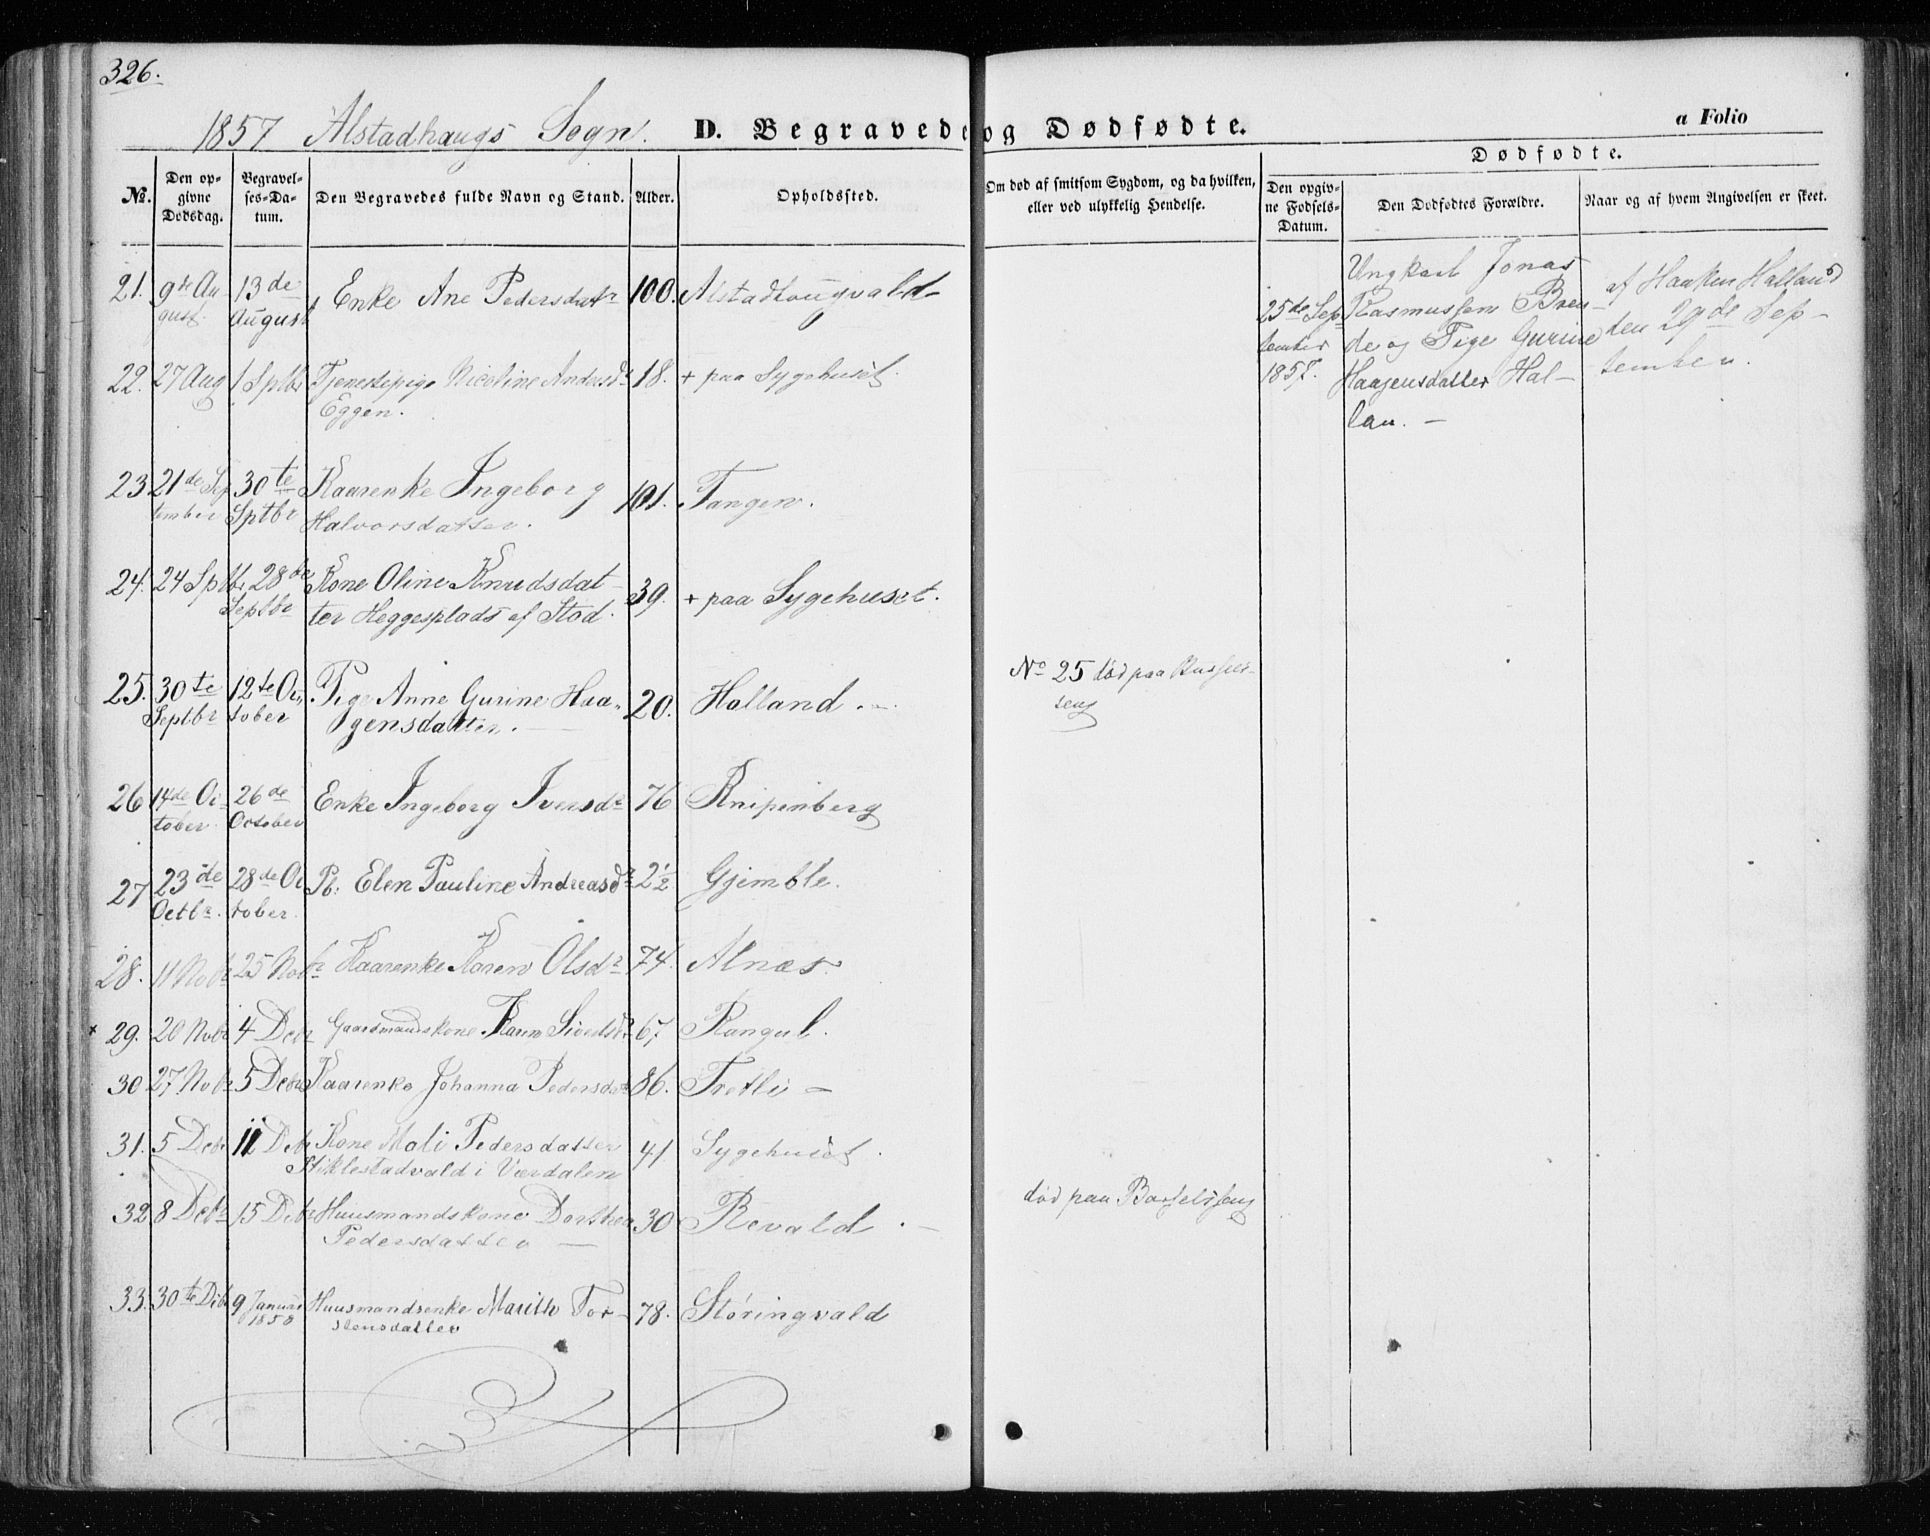 326.
1857 Alstadhaugs Sogn. D. Begravede og Dødfødte. a Folio
Dødfødte.
No. Den opgivne Dødsdag. Begravelses-Datum. Den Begravedes fulde Navn og Stand. Alder. Opholdssted. Om død af smitsom Sygdom, og da hvilken, eller ved ulykkelig Hendelse. Den opgivne Fødsels-Datum. Den Dødfødtes Forældre. Naar og af hvem Angivelsen er skeet.
21. 9de August. 13de August Enke Ane Pedersdatr 100. Alstadhougvald
25de September 1857. Ungkarl Jonas
Rasmussen Bren-
de og Pige Gurine
Haagensdatter Hal-
lan. —
af Haaken Halland
den 29de Sep-
tember.
22. 27 Aug 1 Sptbr Tjenestepige Nicoline Andersdr 18. + paa Sygehuset.
Eggen.
23 21de September 30te Sptbr Kaarenke Ingeborg 101. Tangen.
Halvorsdatter.
24. 24 Sptbr 28de Septbr Kone Oline Knudsdat- 39. + paa Sygehuset.
ter Heggesplads af Stod.
25. 30te Septbr 12te October Pige Anne Gurine Haa- 20. Halland. —
gensdatter. —
No 25 død paa Barsels-
seng
26 14de October 26de October Enke Ingeborg Iversdr 76 Knipenberg
27 23de Octbr. 28de October Pb: Elen Pauline Andreasdr 2½ Gjemble.
28. 11 Nobr 25 Nobr Kaarenke Karen Olsdr 74. Alnes.
× 29. 20 Nvbr 4 Debr Gaardmandskone Karen Sivertsdr 67. Rangul.
30 27 Nobr 5 Debr Kaarenke Johanna Pedersdatr 86. Tretli —
31. 5 Debr 11 Debr Kone Mali Pedersdatter 41. Sygehuset.
Stiklestadvald i Værdalen
32 8 Debr 15 Debr Huusmandskone Dorthea 30 Revald. —
Pedersdatter —
død paa Barselseng
33. 30te Debr 9 Januar 1858 Huusmandsenke Marith Tor- 78. Størингvald
stensdatter